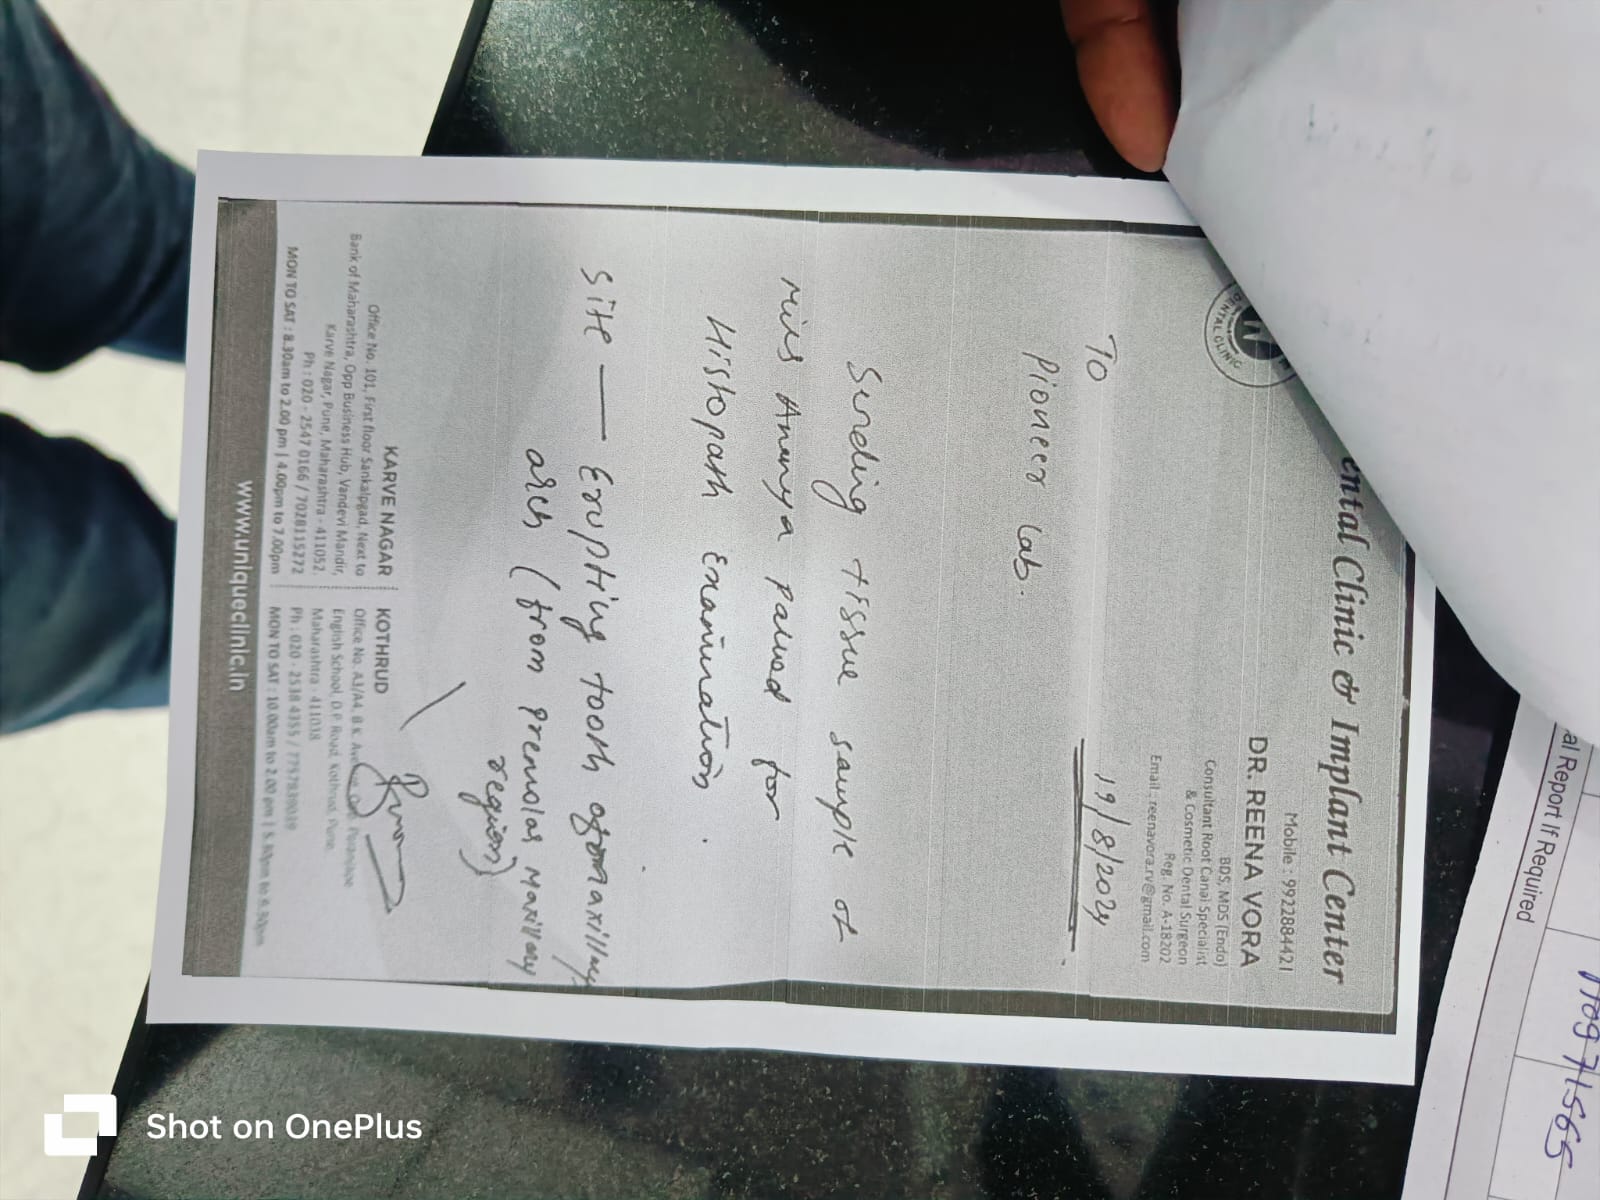 ental Clinic & Implant Center
Mobile : 9922884421
DR. REENA VORA
BDS, MDS (Endo)
Consultant Root Canal Specialist
& Cosmetic Dental Surgeon
Reg. No. A-18202
Email : reenavora.rv@gmail.com
DENTAL CLINIC
19/8/2024
To
Pioneer Lab.
Sending tissue sample of
Miss Ananya for
Histopath Examination.
Site — Erupting tooth of maxillary
arch (from premolar Maxillary
region)
KARVE NAGAR
Office No. 101, First floor Sankalpgad, Next to
Bank of Maharashtra, Opp Business Hub, Vandevi Mandir,
Karve Nagar, Pune, Maharashtra - 411052.
Ph : 020 - 2547 0166 / 7028115272
MON TO SAT : 8.30am to 2.00 pm | 4.00pm to 7.00pm
KOTHRUD
Office No. A3/A4, B.K.
English School, D.P. Road, Kothrud, Pune,
Maharashtra - 411038
Ph : 020 - 2538 4355 /
MON TO SAT : 10.00am to 2.00 pm |
www.uniqueclinic.in
al Report If Required
71565
Shot on OnePlus